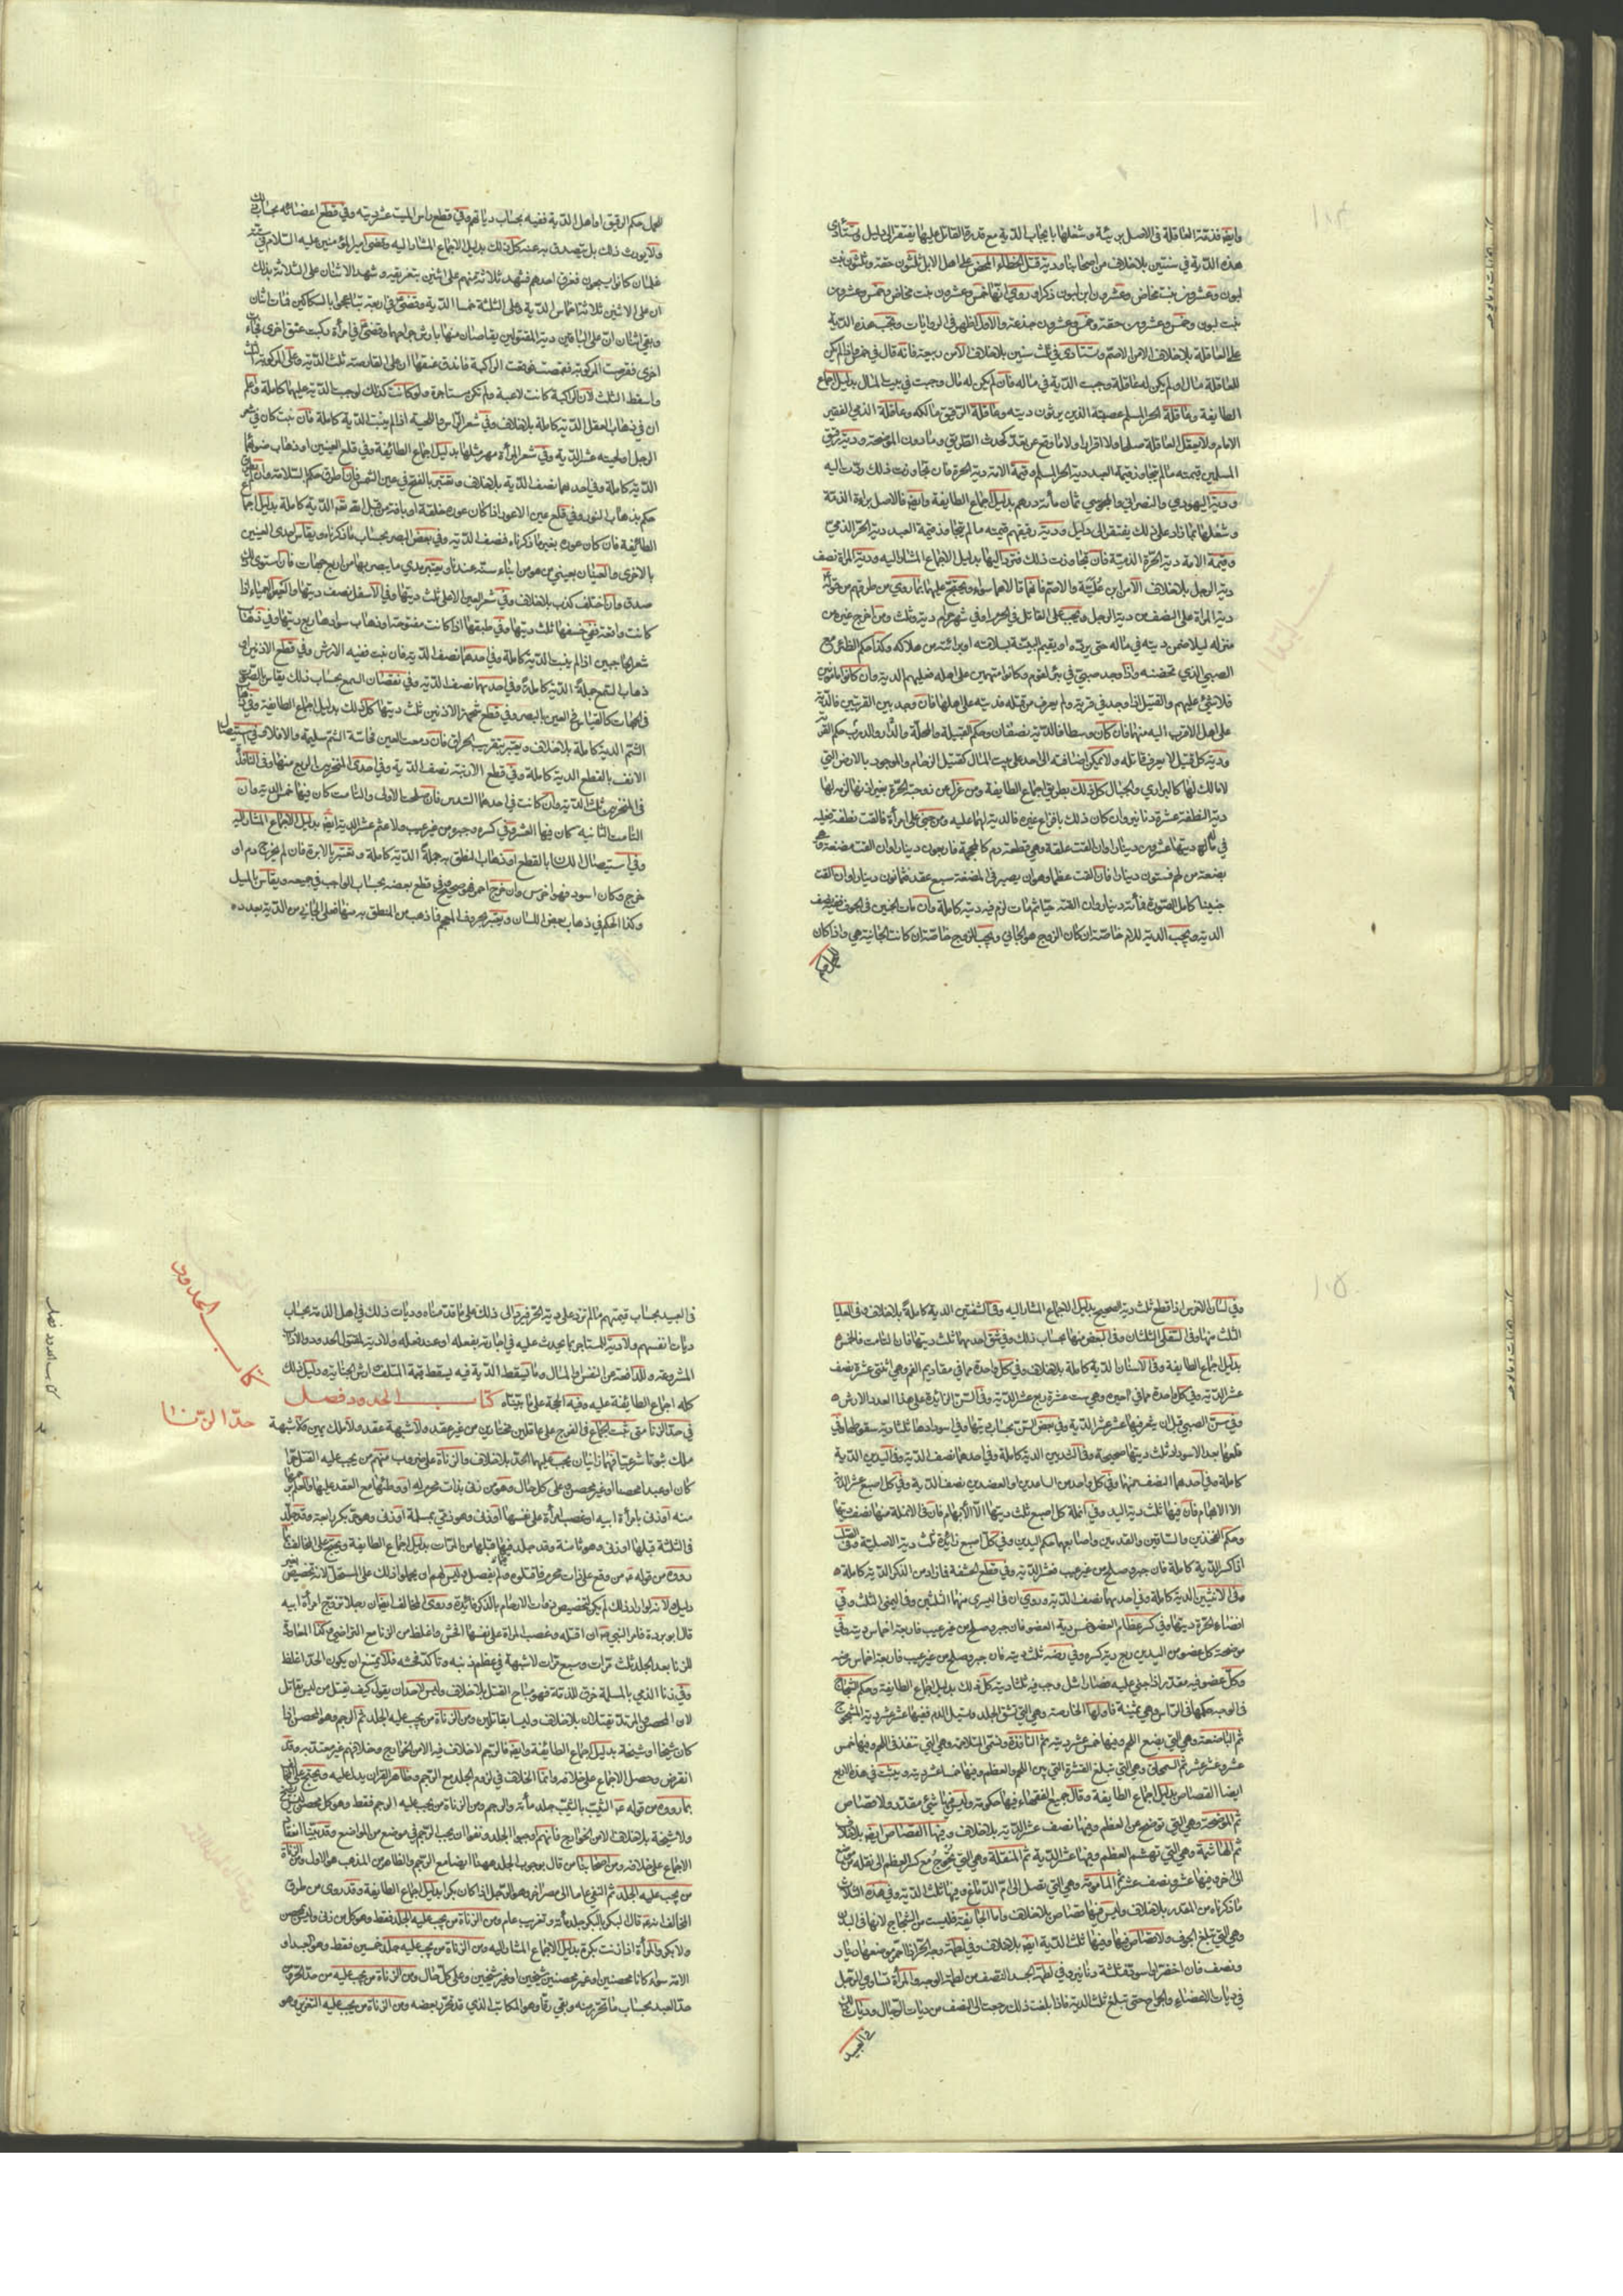 ١٠٤
وايضا فذمة العاقلة في الاصل بريئة وشغلها بايجاب الدية مع قدرة القاتل عليها يفتقر الى دليل وتستأدى
هذه الدية في سنتين بلا خلاف من اصحابنا ودية قتل الخطاء المحض على اهل الابل ثلثون حقة وثلثون بنت
لبون وعشرون بنت مخاض وعشرون ابن لبون ذكر وروي انها خمس وعشرون بنت مخاض وخمس وعشرون
بنت لبون وخمس وعشرون حقة وخمس وعشرون جذعة والاول اظهر في الروايات وتجب هذه الدية
على العاقلة بلا خلاف الا من الاصم وتستأدى في ثلث سنين بلا خلاف الا من ربيعة فانه قال في خمس فان لم يكن
للعاقلة مال او لم يكن له عاقلة وجبت الدية في ماله فان لم يكن له مال وجبت في بيت المال بدليل اجماع
الطايفة وعاقلة الحر المسلم عصبته الذين يرثون ديته وعاقلة الرقيق مالكه وعاقلة الذمي الفقير
الامام ولا يعقل العاقلة صلحا ولا اقرارا ولا ما وقع عن تعد كحدث الطريق وما دون الموضحة ودية رقيق
المسلمين قيمته ما لم يتجاوز قيمة العبد دية الحر المسلم وقيمة الامة دية الحرة فان تجاوزت ذلك ردت اليه
ودية اليهودي والنصراني والمجوسي ثمان مأنة درهم بدليل اجماع الطايفة وايضا فالاصل براءة الذمة
وشغلها بما زاد على ذلك يفتقر الى دليل ودية رقيقهم قيمته ما لم يتجاوز قيمة العبد دية الحر الذمي
وقيمة الامة دية الحرة الذمية فان تجاوزت ذلك فترد اليها بدليل الاجماع المشار اليه ودية المراة نصف
دية الرجل بلا خلاف الا من ابن علية والاصم فانهما قالا هما سواء ويحتج عليهما بما روي من طرقهم من قوله
دية المراة على النصف من دية الرجل وتجب على القاتل في الحرم او في شهر حرام دية وثلث ومن اخرج غيره من
منزله ليلا ضمن ديته في ماله حتى يرده او يقيم البينة بسلامته او برائته من هلاكه وكذا حكم الظئر مع
الصبي الذي تحضنه واذا وجد صبي في بئر لقوم وكانوا متهمين على اهله فعليهم الدية وان كانوا مامونين
فلا شئ عليهم والقتيل اذا وجد في قرية ولم يعرف من قتله فديته على اهلها فان وجد بين القريتين فالدية
على اهل الاقرب اليه منهما فان كان وسطا فالدية نصفان وحكم القبيلة والمحلة والدار والدرب حكم القرية
ودية كل قتيل لا يعرف قاتله ولا يمكن اضافته الى احد على بيت المال كقتيل الزحام والموجود بالارض التي
لا مالك لها كالبراري والجبال كل ذلك بطريق اجماع الطايفة ومن عزل عن زوجته الحرة بغير اذنها لزمه لها
دية النطفة عشرة دنانير وان كان ذلك بافزاع غيره فالدية لهما عليه ومن جنى على امراة فالقت نطفة فعليه
في ماله ديتها عشرون دينارا وان القت علقة وهي قطعة دم كالمحجمة فاربعون دينارا وان القت مضغة وهي
بضعة من لحم فستون دينارا فان القت عظما وهو ان يصير في المضغة سبع عقد فثمانون دينارا وان القت
جنينا كامل الصورة فمأنة دينار وان القته حيا ثم مات لزم فيه دية كاملة وان مات الجنين في الجوف ففيه نصف
الدية وتجب الدية للام خاصة ان كان الزوج هو الجاني وتجب للزوج خاصة ان كانت الجانية هي واذا كان
للحمل حكم الرقيق او اهل الذمة ففيه بحساب دياتهم وفي قطع راس الميت عشر ديته وفي قطع اعضائه بحساب ذلك
ولا يورث ذلك بل يتصدق به عنه كل ذلك بدليل الاجماع المشار اليه وقضى امير المؤمنين عليه السلام في ستة
غلمان كانوا يسبحون فغرق احدهم فشهد ثلاثة منهم على اثنين بتغريقه وشهد الاثنان على الثلاثة بذلك
ان على الاثنين ثلاثة اخماس الدية وعلى الثلثة خمسا الدية وقضى في اربعة تباعجوا بالسكاكين فمات اثنان
وبقي اثنان ان على الباقين دية المقتولين يقاصان منها بارش جراحهما وقضى في امرأة ركبت عنق اخرى فجاءت
اخرى فقرصت المركوبة فقمصت فوقعت الراكبة فاندق عنقها ان على القارصة ثلث الدية وعلى المركوبة الثلث
واسقط الثلث لان الراكبة كانت لاعبة ولم تكن مستاجرة ولو كانت كذلك لوجبت الدية عليهما كاملة واعلم
ان في ذهاب العقل الدية كاملة بلا خلاف وفي شعر الرأس او اللحية اذا لم ينبت الدية كاملة فان نبت كان في شعر
الرجل او لحيته عشر الدية وفي شعر المرأة مهر مثلها بدليل اجماع الطائفة وفي قلع العينين او ذهاب ضوئهما
الدية كاملة وفي احدهما نصف الدية بلا خلاف
حكم بذهاب النور وفي قلع عين الاعور اذا كان عوره خلقة او بافة من قبل الله تعالى الدية كاملة بدليل اجماع
الطائفة فان كان عوره بغير ما ذكرناه فنصف الدية وفي نقصان البصر بحساب ما ذكرناه ويقاس احدى العينين
بالاخرى والعينان بعيني من هو من ابناء سنه عندنا ويعتبر مدى ما يبصر بها من اربع جهات فان استوى ذلك
صدق وان اختلف كذب بلا خلاف وفي شعر العين الاعلى ثلث ديتها وفي الاسفل نصف ديتها والعين العمياء اذا
كانت واقفة ففي خسفها ثلث ديتها وفي طبقها اذا كانت مفتوحة او ذهاب سوادها ربع ديتها وفي ذهاب
شعر الحاجبين اذا لم ينبت الدية كاملة وفي احدهما نصف الدية فان نبت ففيه الارش وفي قطع الاذنين او
ذهاب السمع جملة الدية كاملة وفي احديهما نصف الدية وفي نقصان السمع بحساب ذلك يقاس الصوت
في الجهات كما يقاس في العين بالبصر وفي قطع شحمة الاذنين ثلث ديتها كل ذلك بدليل اجماع الطايفة وفي ذهاب
الشم الدية كاملة بلا خلاف ويعتبر بتقريب الحراق فان دمعت العين فحاسة الشم سليمة والا فلا وفي استيصال
الانف بالقطع الدية كاملة وفي قطع الارنبة نصف الدية وفي احدى المنخرين الربع منها وفي النافذة
في المنخرين ثلث الدية وان كانت في احدهما السدس
الثامت الثانية كان فيها العشر وفي كسره وجبره من غير عيب ولا عثم عشر الدية ايضا بدليل الاجماع المشار اليه
وفي استيصال اللسان بالقطع او ذهاب النطق به جملة الدية كاملة ويعتبر بالابرة فان لم يخرج دم او
خرج وكان اسود فهو اخرس وان خرج احمر فهو صحيح وفي قطع بعضه بحساب الواجب في جميعه ويقاس بالميل
وكذا الحكم في ذهاب بعض اللسان ويعتبر بحروف المعجم فما ذهب من المنطق به منها فعلى الجاني من الدية بعدده
١٠٥
وفي لسان الاخرس اذا قطع ثلث دية الصحيح بدليل الاجماع المشار اليه وفي الشفتين الدية كاملة بلا خلاف وفي العليا
الثلث منها وفي السفلى الثلثان وفي البعض منها بحساب ذلك وفي شق احديهما ثلث ديتها فان التامت فالخمس
بدليل اجماع الطايفة وفي الاسنان الدية كاملة بلا خلاف وفي كل واحدة مما في مقاديم الفم وهي اثنتي عشرة نصف
عشر الدية وفي كل واحدة مما في اخيره وهي ست عشرة ربع عشر الدية وفي السن الزائدة على هذا العدد الارش
وفي سن الصبي قبل ان يثغر فيها عشر عشر الدية وفي بعض السن بحساب ديتها وفي اسودادها ثلثا دية سقوطها وفي
قلعها بعد الاسوداد ثلث ديتها صحيحة وفي الثديين الدية كاملة وفي احدهما نصف الدية وفي اليدين الدية
كاملة وفي احدهما النصف منها وفي كل واحد من الساعدين او العضدين نصف الدية وفي كل اصبع عشر الدية
الا الابهام فان فيها ثلث دية اليد وفي انملة كل اصبع ثلث ديتها الا الابهام فان في الانملة منها نصف ديتها
وحكم الفخذين والساقين والقدمين واصابعهما حكم اليدين وفي كل اصبع زائدة ثلث دية الاصلية وفي الصلب
اذا كسر الدية كاملة فان جبر وصلح من غير عيب فعشر الدية وفي قطع الحشفة فما زاد من الذكر الدية كاملة
وفي الانثيين الدية كاملة وفي احديهما نصف الدية وروي ان في اليسرى منهما الثلثين وفي اليمنى الثلث وفي
افضاء الحرة ديتها وفي كسر عظام العضو خمس دية العضو فان جبر وصلح من غير عيب فاربعة اخماس ديته وفي
موضحة كل عضو من اليدين ربع دية كسره وفي رضه ثلث ديته فان جبر وصلح من غير عيب فاربعة اخماس رضه
وكل عضو فيه مقدر اذا جنى عليه فصار اشل وجب فيه ثلثا ديته كل ذلك بدليل اجماع الطايفة وحكم الشجاج
في الوجه حكمها في الراس وهي ثمنية فاولها الخارصة وهي التي تشق الجلد وتسيل الدم ففيها عشر عشر دية المشجوج
ثم الباضعة وهي التي تبضع اللحم وفيها خمس عشر ديته ثم النافذة وتسمى المتلاحمة وهي التي تنفذ في اللحم وفيها خمس
عشر وعشر عشر ثم السمحاق وهي التي تبلغ القشرة التي بين اللحم والعظم وفيها خمسا عشر ديته ويثبت في هذه الاربع
ايضا القصاص بدليل اجماع الطايفة وقال جميع الفقهاء فيها حكومة وليس فيها شئ مقدر ولا قصاص
ثم الموضحة وهي التي توضح عن العظم وفيها نصف عشر الدية بلا خلاف وفيها القصاص ايضا بلا خلاف
ثم الهاشمة وهي التي تهشم العظم وفيها عشر الدية ثم المنقلة وهي التي تحوج مع كسر العظم الى نقله من موضع
الى اخر وفيها عشر ونصف عشر ثم المامومة وهي التي تصل الى ام الدماغ وفيها ثلث الدية وفي هذه الثلاث
ما ذكرناه من المقدر بلا خلاف وليس فيها قصاص بلا خلاف واما الجايفة فليست من الشجاج لانها في البدن
وهي التي تبلغ الجوف ولا قصاص فيها وفيها ثلث الدية ايضا بلا خلاف وفي لطمة وجه الحر اذا احمر موضعها دينار
ونصف فان اخضر او اسود فثلثة دنانير وفي لطمة الجسد النصف من لطمة الوجه والمرأة تساوي الرجل
في ديات الاعضاء والجراح حتى تبلغ ثلث الدية فاذا بلغت ذلك رجعت الى النصف من ديات الرجال وديات
في العبيد
في العبيد بحساب قيمتهم ما لم تزد على دية الحر فيرد الى ذلك على ما قدمناه وديات ذلك في اهل الذمة بحساب
ديات انفسهم ولا دية للمستاجر بما يحدث عليه في اجارته بفعله او عند فعله ولا دية لمقتول الحدود والاداب
المشروعة وللدافعة عن النفس والمال وما يسقط الدية فيه يسقط قيمة المتلف وارش الجناية ودليل ذلك
كله اجماع الطائفة عليه وفيه الحجة على ما بيناه كتاب الحدود فصل
في حد الزنا متى ثبت الجماع في الفرج على عاقلين مختارين من غير عقد ولا شبهة عقد ولا ملك يمين ولا شبهة
ملك ثبوتا شرعيا فهما زانيان يجب عليهما الحد بلا خلاف والزناة على ضروب منهم من يجب عليه القتل حرا
كان او عبدا محصنا او غير محصن على كل حال وهو من زنى بذات محرم له او وطئها مع العقد عليها والعلم
منه او زنى بامرأة ابيه او غصب امرأة على نفسها او زنى وهو ذمي بمسلمة او زنى وهو حر بكر رابعة وقد جلد
في الثلثة قبلها او زنى وهو ثامنة وقد جلد فيما قبلها من المرات بدليل اجماع الطايفة ويحتج على المخالف بما
رووه من قوله من وقع على ذات محرم فاقتلوه ولم يفصل وليس لهم ان يحملوا ذلك على المستحل لانه تخصيص بغير
دليل ولانه لو اراد ذلك لم يكن لتخصيص ذوات الارحام بالذكر فائدة وروى المخالف ايضا ان رجلا تزوج امرأة ابيه
قال ابو بردة فامر النبي ان اقتله وغصب المرأة على نفسها افحش واغلظ من الزنا مع التراضي وكذا المعاودة
للزنا بعد الجلد ثلث مرات وسبع مرات لا شبهة في عظم ذنبه وتأكد فحشه فلا يمتنع ان يكون الحد اغلظ
وفي زنا الذمي بالمسلمة خرق للذمة فهو مباح القتل بلا خلاف وليس لاحد ان يقول كيف يقتل من ليس بقاتل
لان المحصن والمرتد يقتلان بلا خلاف وليسا بقاتلين ومن الزناة من يجب عليه الجلد ثم الرجم وهو المحصن اذا
كان شيخا او شيخة بدليل اجماع الطائفة وايضا فالرجم لا خلاف فيه الا من الخوارج وخلافهم غير معتد به وقد
انقرض وحصل الاجماع على خلافه وانما الخلاف في لزوم الجلد مع الرجم وظاهر القران يدل عليه ويحتج على المخالف
بما رووه من قوله الثيب بالثيب جلد مأنة والرجم ومن الزناة من يجب عليه الرجم فقط وهو كل محصن ليس بشيخ
ولا شيخة بلا خلاف الا من الخوارج فانهم اوجبوا الجلد ونفوا ان يجب الرجم في موضع من المواضع وقد بينا انعقاد
الاجماع على خلافه ومن اصحابنا من قال بوجوب الجلد ههنا ايضا مع الرجم والظاهر من المذهب هو الاول ومن الزناة
من يجب عليه الجلد ثم النفي عاما الى مصر اخر وهو الرجل اذا كان بكرا بدليل اجماع الطايفة وقد روي من طرق
المخالف انه قال البكر بالبكر جلد مأنة وتغريب عام ومن الزناة من يجب عليه الجلد فقط وهو كل من زنى وليس بمحصن
ولا بكر والمرأة اذا زنت بكرة بدليل الاجماع المشار اليه ومن الزناة من يجب عليه جلد خمسين فقط وهو العبد او
الامة سواء كانا محصنين او غير محصنين شيخين او غير شيخين وعلى كل حال ومن الزناة من يجب عليه من حد الحر ومن
حد العبد بحساب ما تحرر منه وبقي رقا وهو المكاتب الذي قد تحرر بعضه ومن الزناة من يجب عليه التعزير وهو
كتاب الحدود
حد الزنا